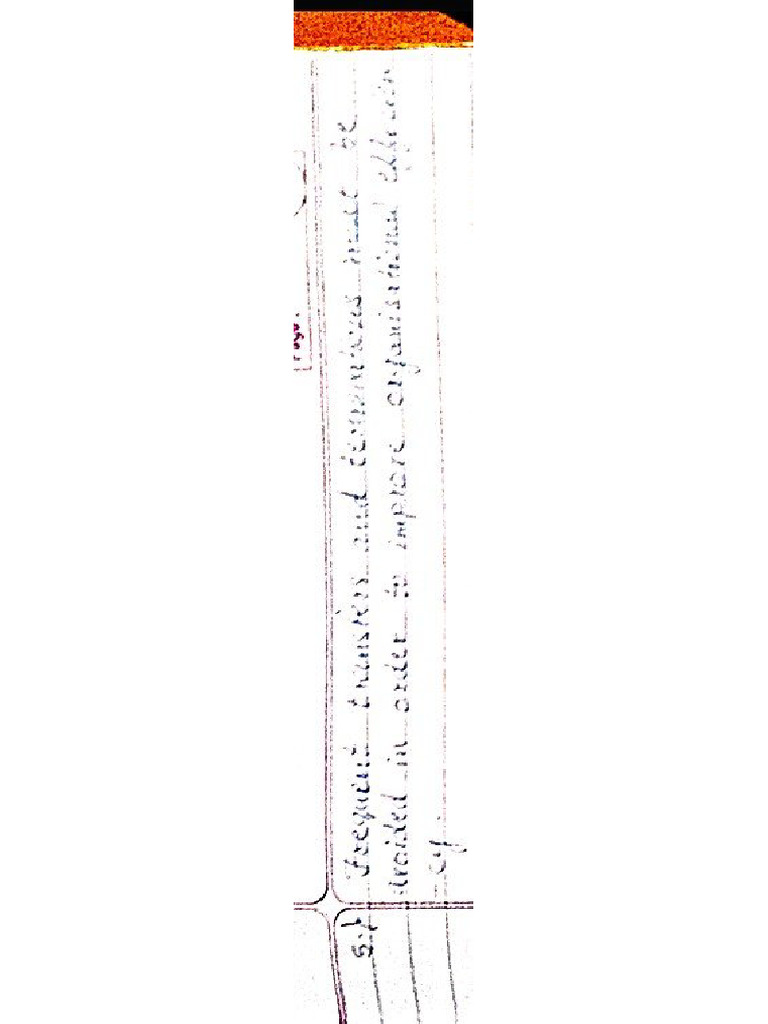 Page:
5.) Frequent transfers and terminations must be
avoided in order to improve organisational efficien
-cy.